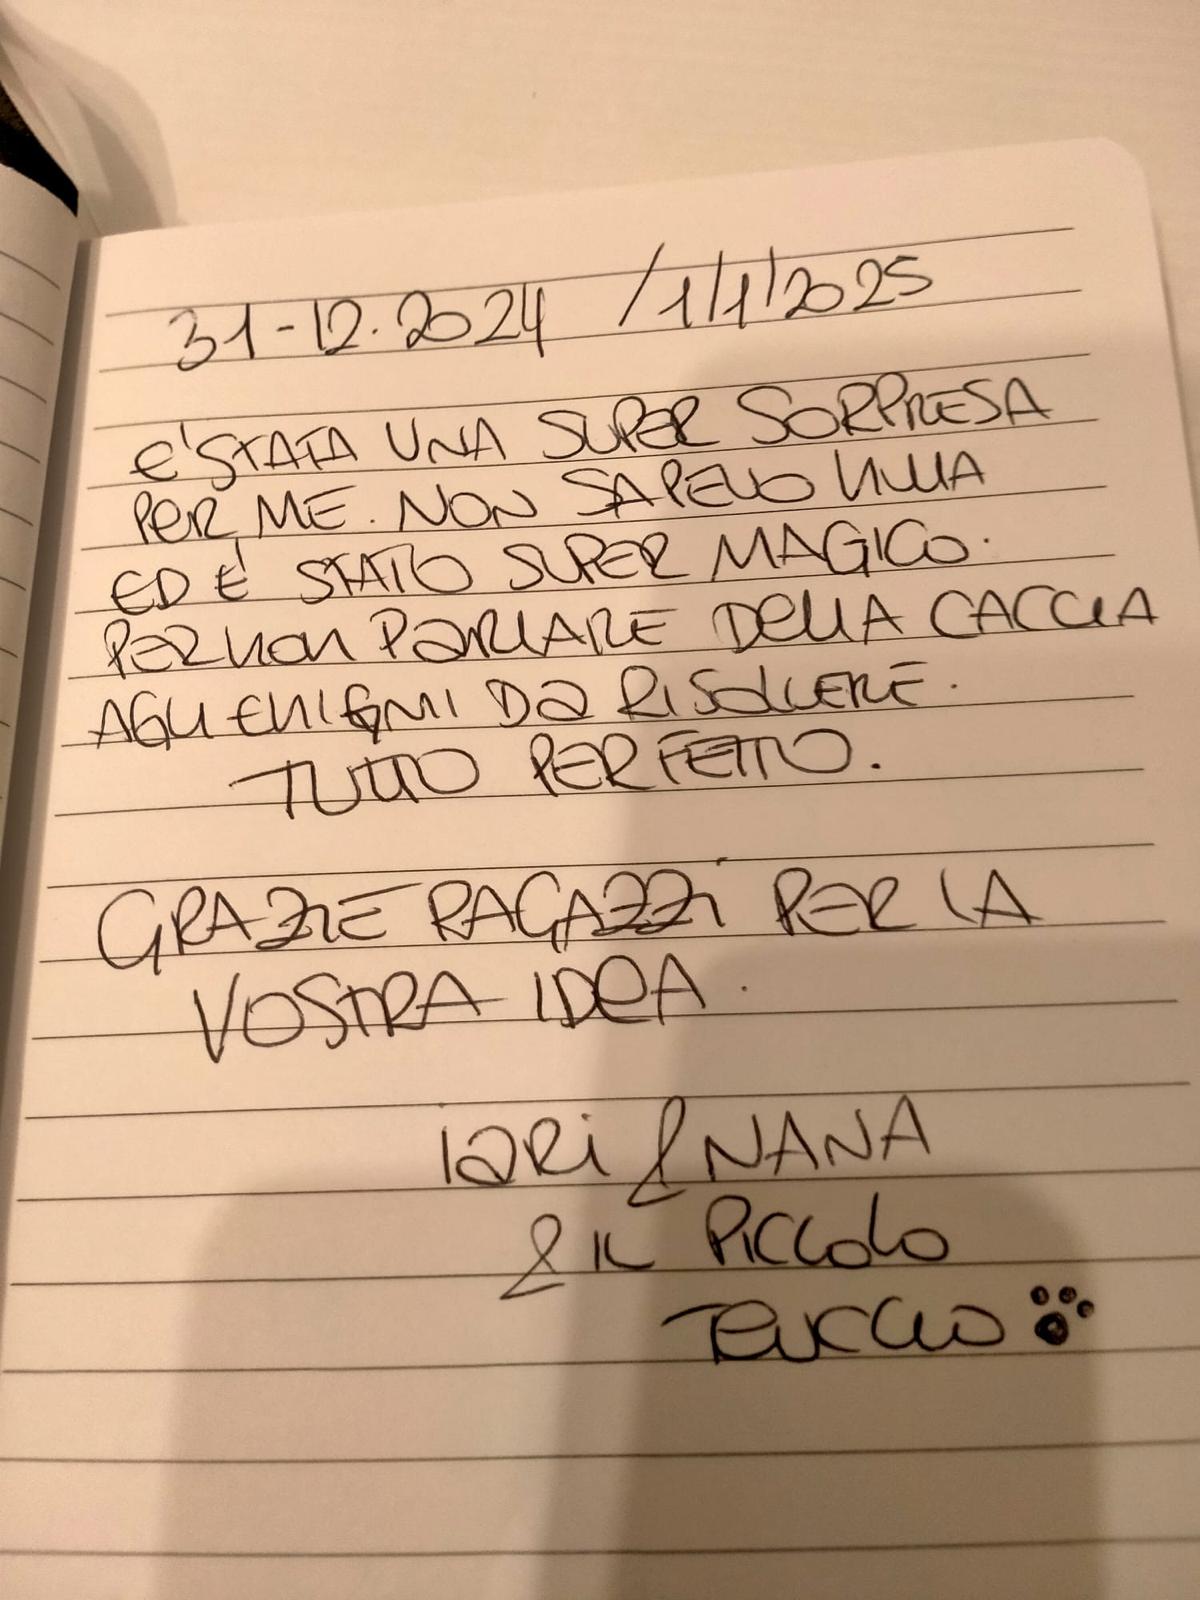 31-12.2024 /1/1/2025
E' STATA UNA SUPER SORPRESA
PER ME. NON SAPEVO NULLA
ED E' STATO SUPER MAGICO.
PER NON PARLARE DELLA CACCIA
AGLI ENIGMI DA RISOLVERE.
TUTTO PERFETTO.
GRAZIE RAGAZZI PER LA
VOSTRA IDEA.
IARI & NANA
& IL PICCOLO